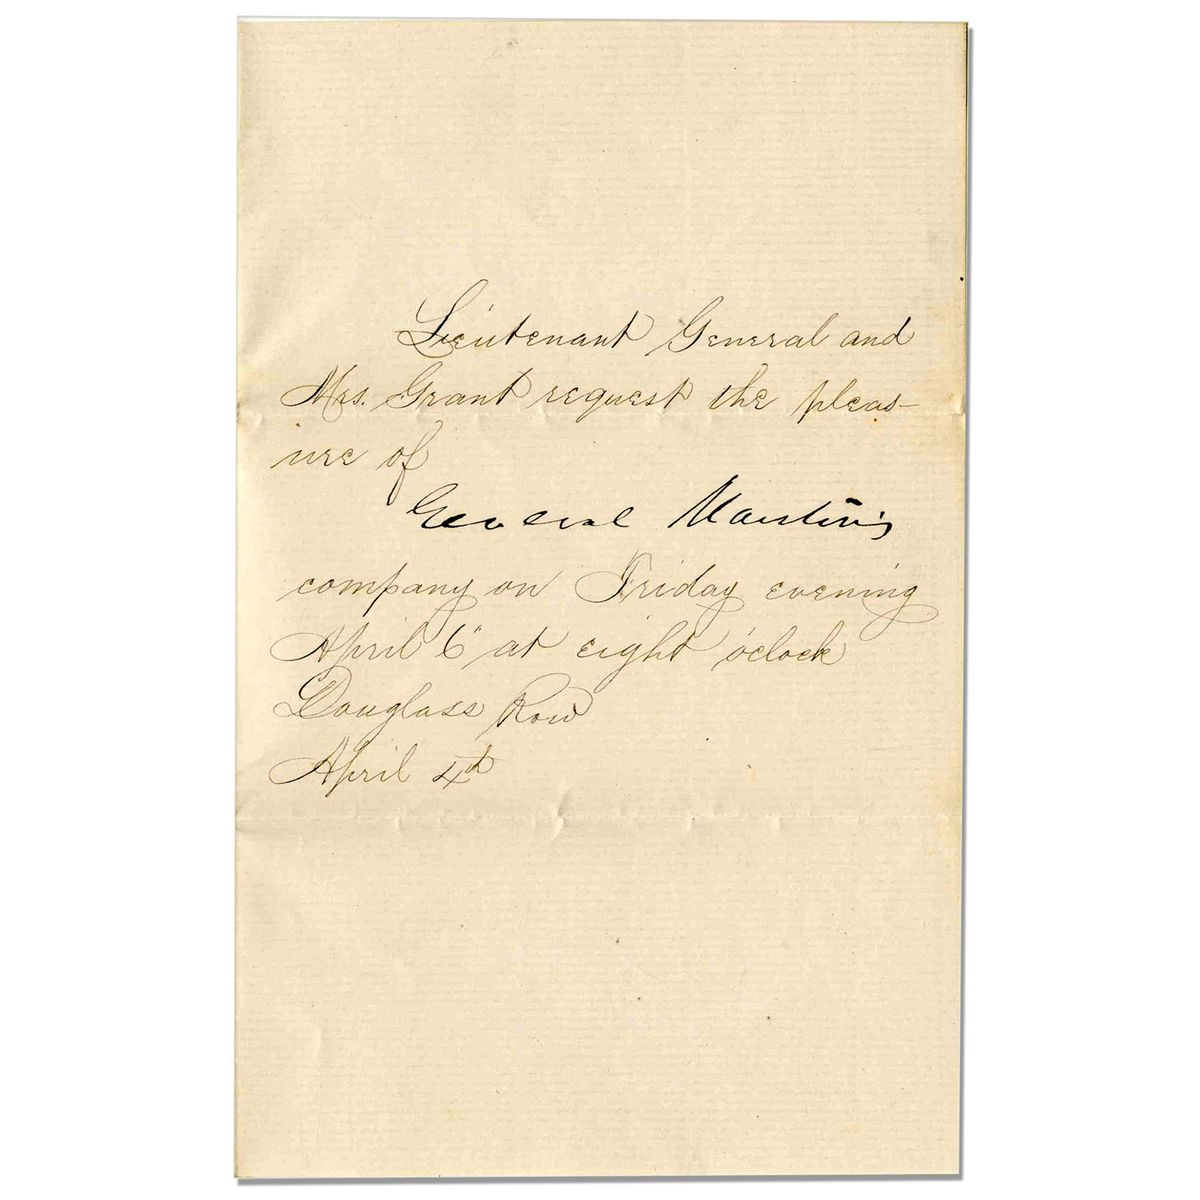 Lieutenant General and
Mrs. Grant request the pleas-
ure of
General
company on Friday evening
April 6" at eight o'clock
Douglass Row
April 4th